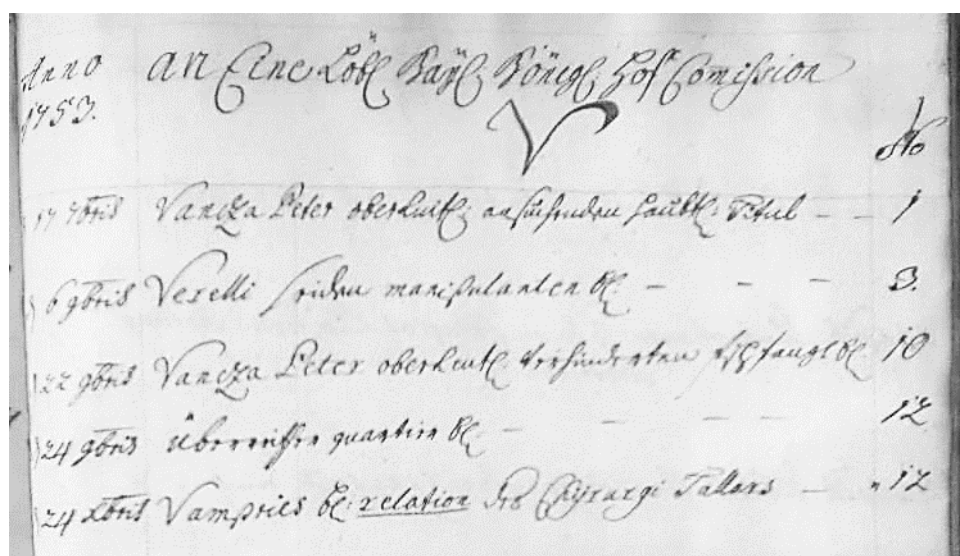 Anno an Eine Löbl. Kaÿl. Königl. Hof Comission
1753.
No
17 7bris Vancza Peter oberleutl. ansuchenden haubtl. Titul — — 1
6 9bris Veselli manipulanten bl. — — — 3.
22 9bris Vancza Peter oberleutl. verhinderten bl. 10
24 9bris quartier bl. — — — — 12
24 Xbris Vampries bl. relation des Chyrurgi Tallars — " 12